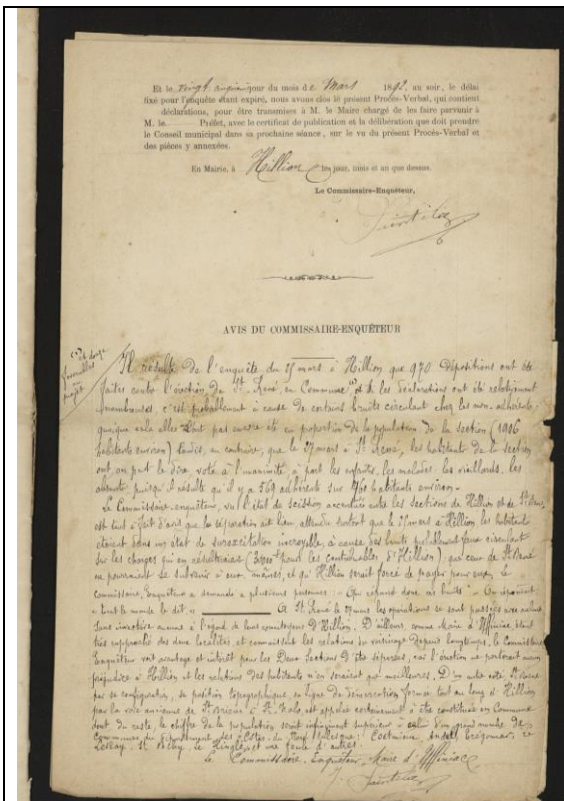 Et le vingt onzième jour du mois de Mars 1892, au soir, le délai
fixé pour l'enquête étant expiré, nous avons clos le présent Procès-Verbal, qui contient
déclarations, pour être transmises à M. le Maire chargé de les faire parvenir à
M. le Préfet, avec le certificat de publication et la délibération que doit prendre
le Conseil municipal dans sa prochaine séance, sur le vu du présent Procès-Verbal et
des pièces y annexées.
En Mairie, à Hillion les jour, mois et an que dessus.
Le Commissaire-Enquêteur,
AVIS DU COMMISSAIRE-ENQUÊTEUR
Il résulte de l'enquête du 25 mars à Hillion que 970 dépositions ont été
faites contre l'érection de St. René en Commune les déclarations ont été relativement
nombreuses, c'est probablement à cause de certains bruits circulant chez les non-adhérents,
quoique cela elles n'ont pas encore été en proportion de la population de la section (1806
habitants environ) tandis, au contraire, que le 27 mars à St René, les habitants de la section
ont, on peut le dire, voté à l'unanimité, à part les enfants, les malades, les vieillards, les
absents puisqu'il résulte qu'il y a 569 adhérents sur 760 habitants environ.
Le Commissaire-enquêteur, vu l'état de scission accentuée entre les sections de Hillion et de St René,
est tout à fait d'avis que la séparation ait lieu, attendu surtout que le 25 mars à Hillion les habitants
étaient dans un état de surexcitation incroyable, à cause des bruits probablement faux circulant
sur les charges qui en résulteraient (pour les contribuables d'Hillion), que ceux de St René
ne pourraient se subvenir à eux-mêmes, et qu'Hillion serait forcé de payer pour eux, le
commissaire Enquêteur a demandé à plusieurs personnes : « Qui répand donc ces bruits ? » On répondait
« tout le monde le dit » À St. René le 27 mars les opérations se sont passées avec calme
sans invective aucune à l'égard de leurs concitoyens d'Hillion. D'ailleurs comme Maire d'Yffiniac, étant
très rapproché des deux localités et connaissant les relations du voisinage depuis longtemps, le Commissaire
Enquêteur voit avantage et intérêt pour les Deux Sections d'être séparées, car l'érection ne porterait aucun
préjudice à Hillion et les relations des habitants n'en seraient que meilleures. D'un autre côté St René
par sa configuration, sa position topographique, sa ligne de démarcation formée tout au long d'Hillion
par la voie ancienne de St Brieuc à St Malo, est appelée certainement à être constituée en Commune
dont, du reste, le chiffre de la population serait infiniment supérieur à celui d'un grand nombre de
Communes du département des Côtes-du-Nord telles que : Coatmieux, Andel, Trégomar, le
et une foule d'autres.
Le Commissaire-Enquêteur, Maire d'Yffiniac